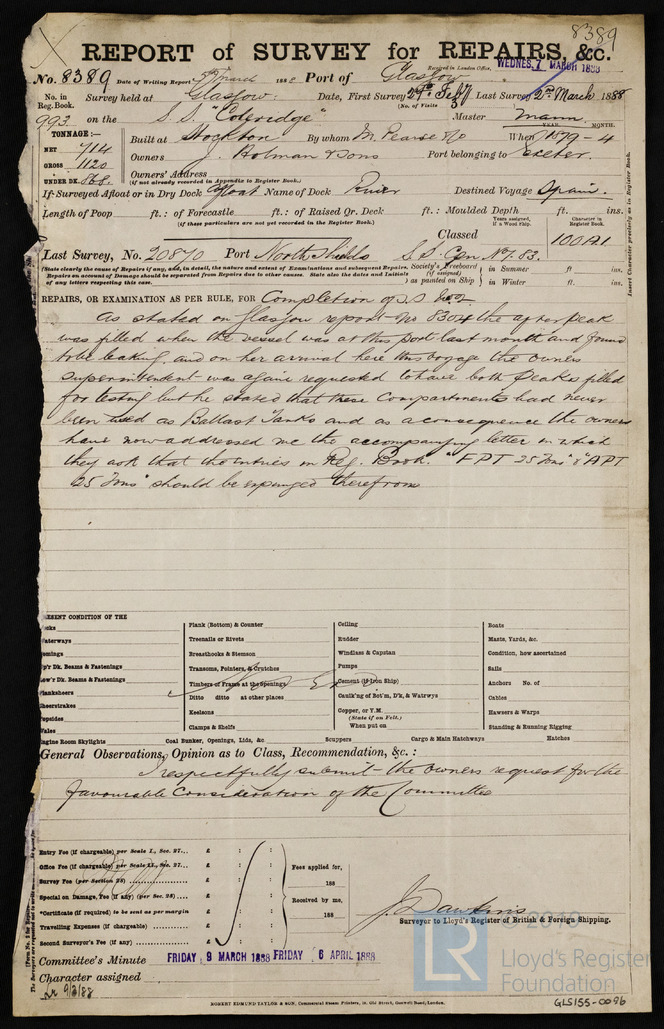 8389
REPORT of SURVEY for REPAIRS, &c.
Received in London Office, WEDNES. 7 MARCH 1888
No. 8389 Date of Writing Report 5th March 1888 Port of Glasgow
No. in Reg. Book. Survey held at Glasgow: Date, First Survey 27th Feby Last Survey 2nd March 1888
(No. of Visits 3)
993 on the S.S. "Coleridge" Master Mann
TONNAGE:— YEAR. MONTH.
NET 714 Built at Stockton By whom M. Pearse & Co When 1879-4
GROSS 1120 Owners J. Holman & Sons Port belonging to Exeter.
UNDER DK. 868. Owners' Address
(if not already recorded in Appendix to Register Book.)
If Surveyed Afloat or in Dry Dock Afloat Name of Dock River Destined Voyage Spain.
Length of Poop ft.: of Forecastle ft.: of Raised Qr. Deck ft.: Moulded Depth ft. ins.
(if these particulars are not yet recorded in the Register Book.)
Years assigned, if a Wood Ship. Character in Register Book.
Classed 100A1
Last Survey, No. 20870 Port North Shields S.S. No. 1. 83.
(State clearly the cause of Repairs if any, and, in detail, the nature and extent of Examinations and subsequent Repairs.
Repairs on account of Damage should be separated from Repairs due to other causes. State also the dates and Initials
of any letters respecting this case.
Society's Freeboard (if assigned) as painted on Ship
in Summer ft. ins.
in Winter ft. ins.
Insert Character precisely as in Register Book.
REPAIRS, OR EXAMINATION AS PER RULE, FOR Completion of S.S. No 2
As stated on Glasgow report No 8304 the after peak
was filled when the vessel was at this port last month and found
to be leaking, and on her arrival here this voyage the owners
superintendent was again requested to have both peaks filled
for testing but he stated that these compartments had never
been used as Ballast Tanks and as a consequence the owners
have now addressed me the accompanying letter in which
they ask that the entries in Reg. Book. "FPT 25 Tons" & "APT
25 Tons" should be expunged therefrom
PRESENT CONDITION OF THE
Decks
Waterways
Comings
Up'r Dk. Beams & Fastenings
Low'r Dk. Beams & Fastenings
Planksheers
Sheerstrakes
Topsides
Wales
Engine Room Skylights
Plank (Bottom) & Counter
Treenails or Rivets
Breasthooks & Stemson
Transoms, Pointers, & Crutches
Timbers of Frame at the Openings
Ditto ditto at other places
Keelsons
Clamps & Shelfs
Coal Bunker, Openings, Lids, &c.
Ceiling
Rudder
Windlass & Capstan
Pumps
Cement (if Iron Ship)
Caulk'ng of Bot'm, D'k, & Watrwys
Copper, or Y.M.
(State if on Felt.)
When put on
Scuppers
Boats
Masts, Yards, &c.
Condition, how ascertained
Sails
Anchors No. of
Cables
Hawsers & Warps
Standing & Running Rigging
Cargo & Main Hatchways
Hatches
General Observations, Opinion as to Class, Recommendation, &c.:
I respectfully submit the owners request for the
favourable consideration of the Committee
Entry Fee (if chargeable) per Scale I., Sec. 27... £ : :
Office Fee (if chargeable) per Scale II., Sec. 27... £ : :
Survey Fee (per Section 28) £ : :
Special on Damage, Fee (if any) (per Sec. 28) £ : :
*Certificate (if required) to be sent as per margin £ : :
Travelling Expenses (if chargeable) £ : :
Second Surveyor's Fee (if any) £ : :
Fees applied for,
188
Received by me,
188
J. Dawkins
Surveyor to Lloyd's Register of British & Foreign Shipping.
Committee's Minute FRIDAY 9 MARCH 1888 FRIDAY 6 APRIL 1888
Character assigned
9/3/88
ROBERT EDMUND TAYLOR & SON, Commercial Steam Printers, 19, Old Street, Goswell Road, London.
GLS155-0096
LR
© 2019
Lloyd's Register
Foundation